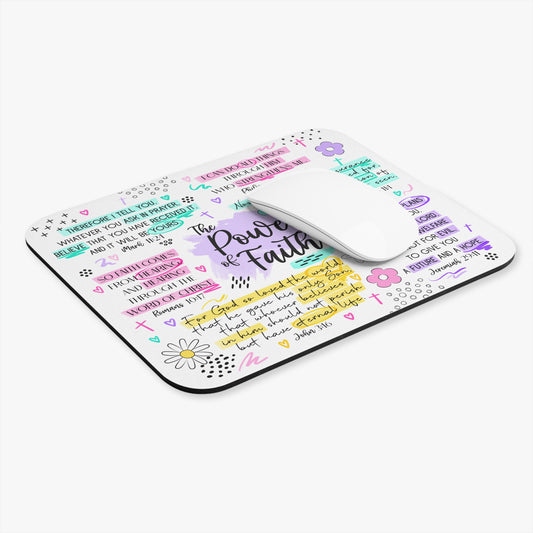 I CAN DO ALL THINGS
THROUGH HIM
WHO STRENGTHENS ME
THEREFORE I TELL YOU,
WHATEVER YOU ASK IN PRAYER,
BELIEVE THAT YOU HAVE RECEIVED IT,
AND IT WILL BE YOURS
Mark 11:24
The
Powe
of Faith
SO FAITH COMES
FROM HEARING,
AND HEARING
THROUGH THE
WORD OF CHRIST
Romans 10:17
For God so loved the world
that he gave his only Son
that whoever believes
in him should not perish
but have eternal life
John 3:16
LORD,
WELFARE
NOT FOR EVIL,
TO GIVE YOU
A FUTURE AND A HOPE
Jeremiah 29:11